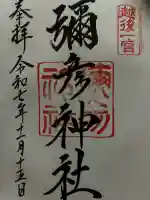 越後一宮
彌彦神社
奉拝
令和七年十一月十五日